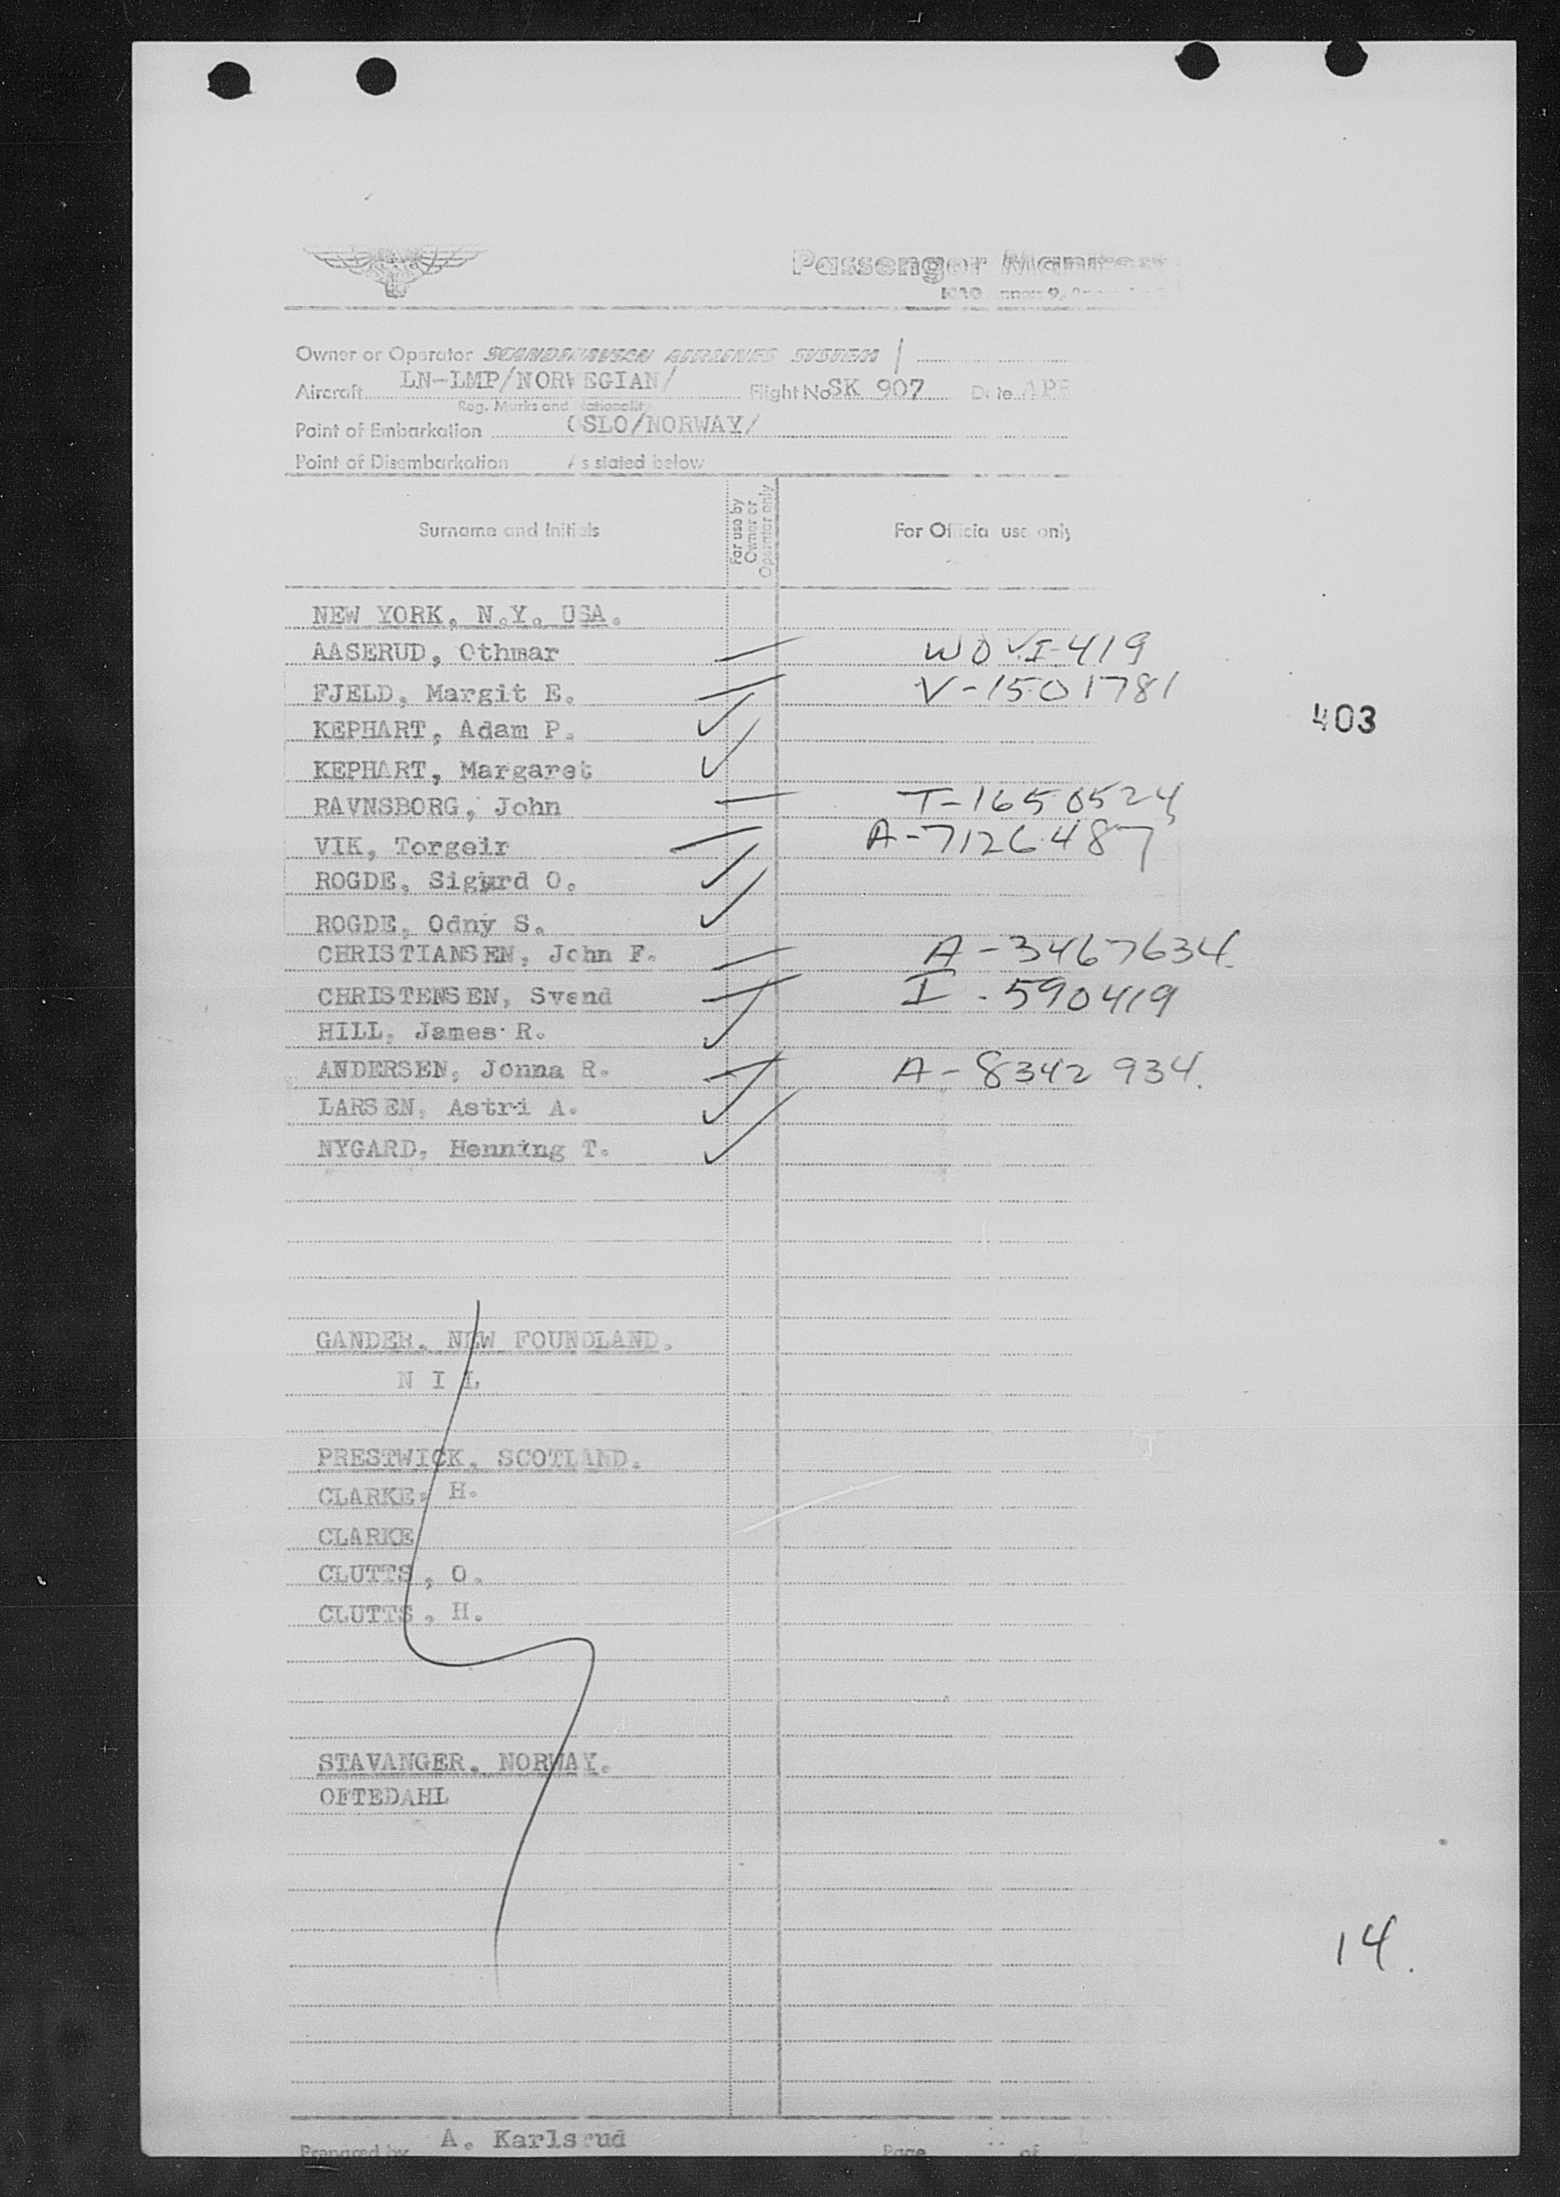 Passenger Manifest
Owner or Operator SCANDINAVIAN AIRLINES SYSTEM
Aircraft LN-LMP/NORWEGIAN/ Flight No SK 907 Date APR
Reg. Marks and Nationality
Point of Embarkation OSLO/NORWAY/
Point of Disembarkation As stated below
Surname and Initials
For use by
Owner or
Operator only
For Official use only
NEW YORK, N.Y. USA.
AASERUD, Othmar WO VI-419
FJELD, Margit E. V-1501781
KEPHART, Adam P.
403
KEPHART, Margaret
RAVNSBORG, John T-1650524
VIK, Torgeir A-7126487
ROGDE, Sigurd O.
ROGDE, Odny S.
CHRISTIANSEN, John F. A-3467634.
CHRISTENSEN, Svend I-590419
HILL, James R.
ANDERSEN, Jonna R. A-8342934.
LARSEN, Astri A.
NYGARD, Henning T.
GANDER, NEW FOUNDLAND.
N I L
PRESTWICK, SCOTLAND.
CLARKE, H.
CLARKE
CLUTTS, O.
CLUTTS, H.
STAVANGER, NORWAY.
OFTEDAHL
14.
Prepared by A. Karlsrud Page of